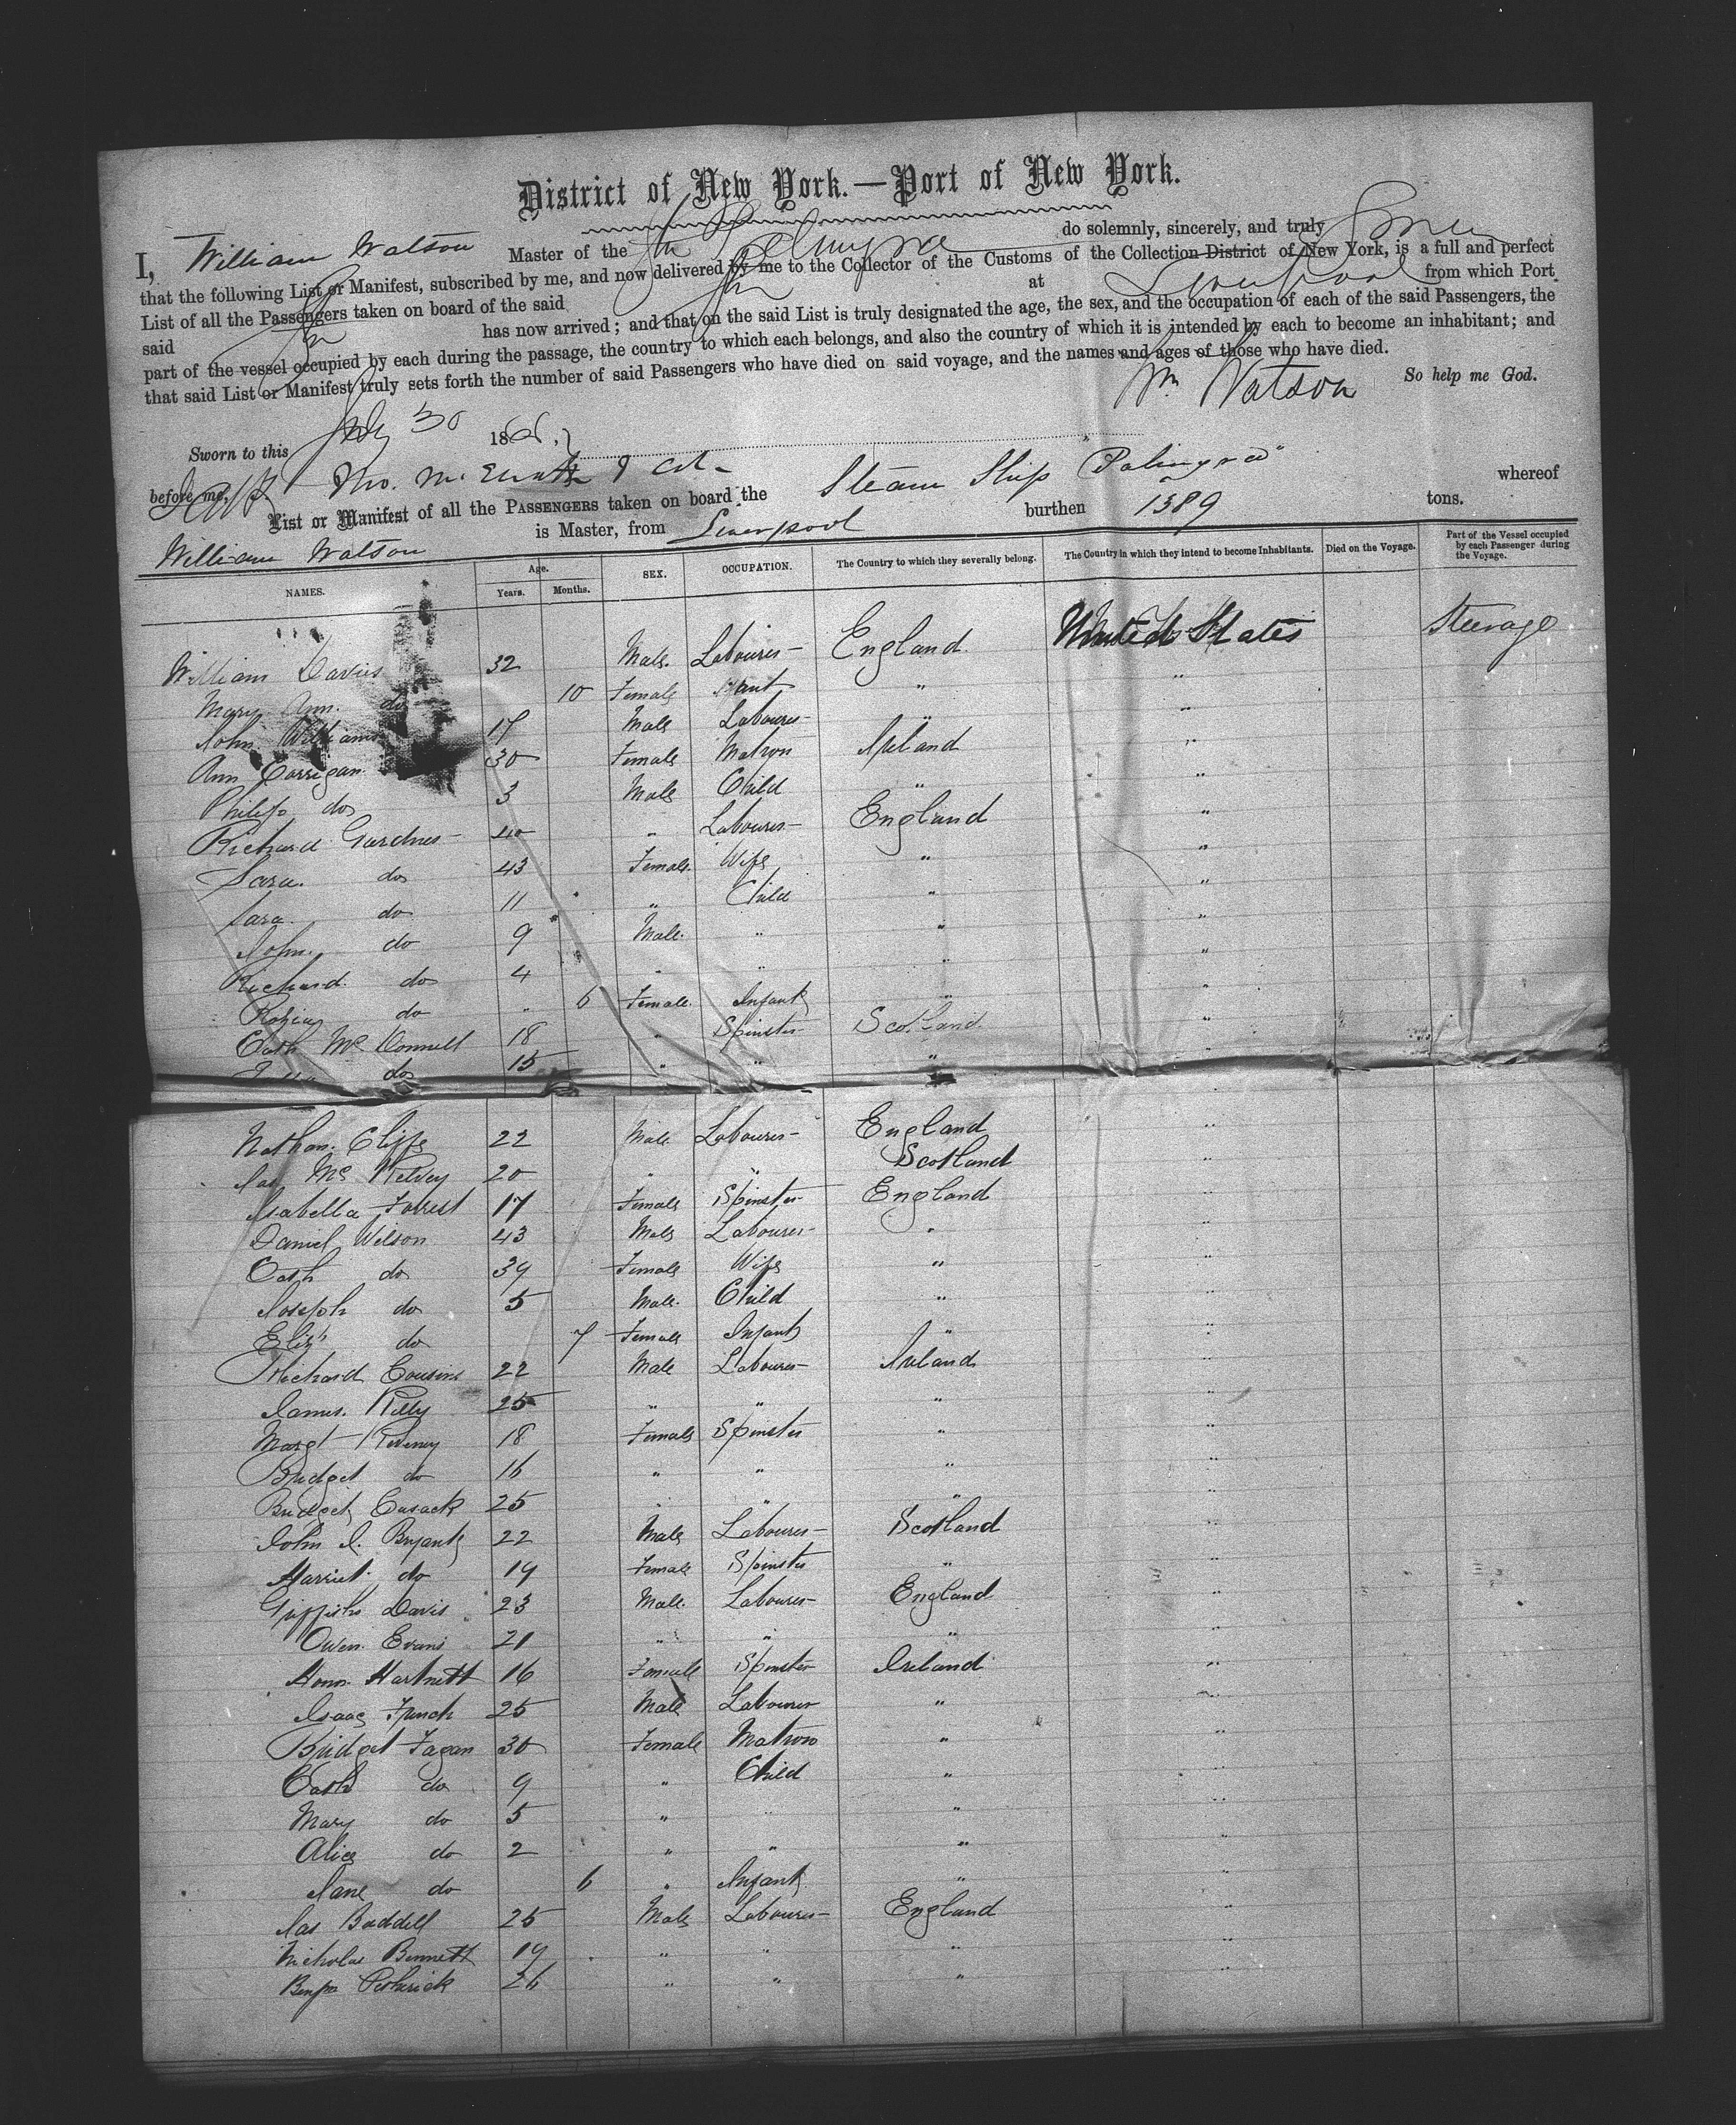 District of New York.—Port of New York.
I, William Watson Master of the Palmyra do solemnly, sincerely, and truly Swear
that the following List or Manifest, subscribed by me, and now delivered by me to the Collector of the Customs of the Collection District of New York, is a full and perfect
List of all the Passengers taken on board of the said at Liverpool from which Port
said has now arrived; and that on the said List is truly designated the age, the sex, and the occupation of each of the said Passengers, the
part of the vessel occupied by each during the passage, the country to which each belongs, and also the country of which it is intended by each to become an inhabitant; and
that said List or Manifest truly sets forth the number of said Passengers who have died on said voyage, and the names and ages of those who have died.
Wm Watson So help me God.
Sworn to this July 30 186
before me,
List or Manifest of all the PASSENGERS taken on board the Steam Ship "Palmyra" whereof
William Watson is Master, from Liverpool burthen 1389 tons.
NAMES. Age. Years. Months. SEX. OCCUPATION. The Country to which they severally belong. The Country in which they intend to become Inhabitants. Died on the Voyage. Part of the Vessel occupied by each Passenger during the Voyage.
William Davies 32 Male. Labourer England United States Steerage
Mary Ann. do 10 Female " "
John Williams 17 Male Labourer " "
Ann Corrigan 30 Female Matron Ireland "
Philip do 3 Male Child " "
Richard Gardner 40 " Labourer England "
Sara. do 43 Female. Wife " "
Sara. do 11 " Child " "
John. do 9 Male. " " "
Richard. do 4 " " " "
do " 6 Female. Infant " "
Cath McConnell 18 " Spinster Scotland "
do 15 " " " "
Nathan. Cliffe 22 Male Labourer England "
Jas McKelvey 20 " " Scotland "
Isabella Forrest 17 Female Spinster England "
Daniel Wilson 43 Male Labourer " "
Cath do 39 Female Wife " "
Joseph do 5 Male. Child " "
Eliz do 7 Female Infant " "
Richard Cousins 22 Male Labourer Ireland "
James. Kelly 25 " " " "
Margt 18 Female Spinster " "
Bridget do 16 " " " "
Bridget Cusack 25 " " " "
John J. Bryant 22 Male Labourer Scotland "
Harriet. do 19 Female Spinster " "
Griffith Davis 23 Male. Labourer England "
Owen. Evans 21 " " " "
Honr. Hartnett 16 Female Spinster Ireland "
Isaac 25 Male Labourer " "
Bridget Fagan 30 Female Matron " "
Cath do 9 " Child " "
Mary do 5 " " " "
Alice do 2 " " " "
Jane do 6 " Infant " "
Jas Buddell 25 Male Labourer England "
Nicholas Bennett 19 " " " "
Benjn Pethrick 26 " " " "